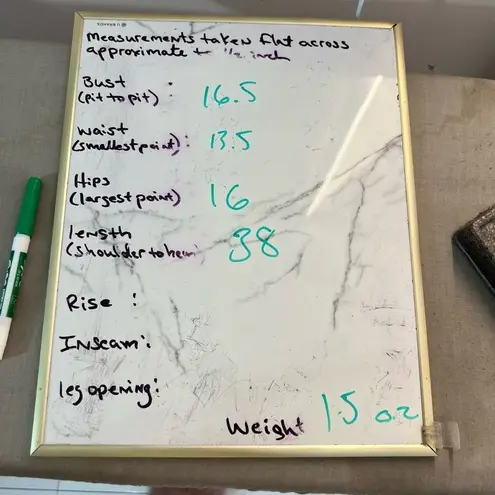 Measurements taken flat across
approximate +- 1/2 inch
Bust :
(pit to pit) 16.5
waist
(smallest point): 13.5
Hips
(largest point) 16
length
(shoulder to hem) 38
Rise :
Inseam:
leg opening:
Weight 1.5 oz